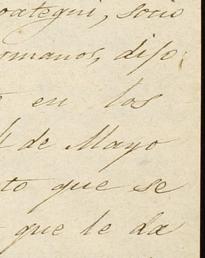 oategui, socio
omanos, dijo:
en los
4 de Mayo
to que se
que le da